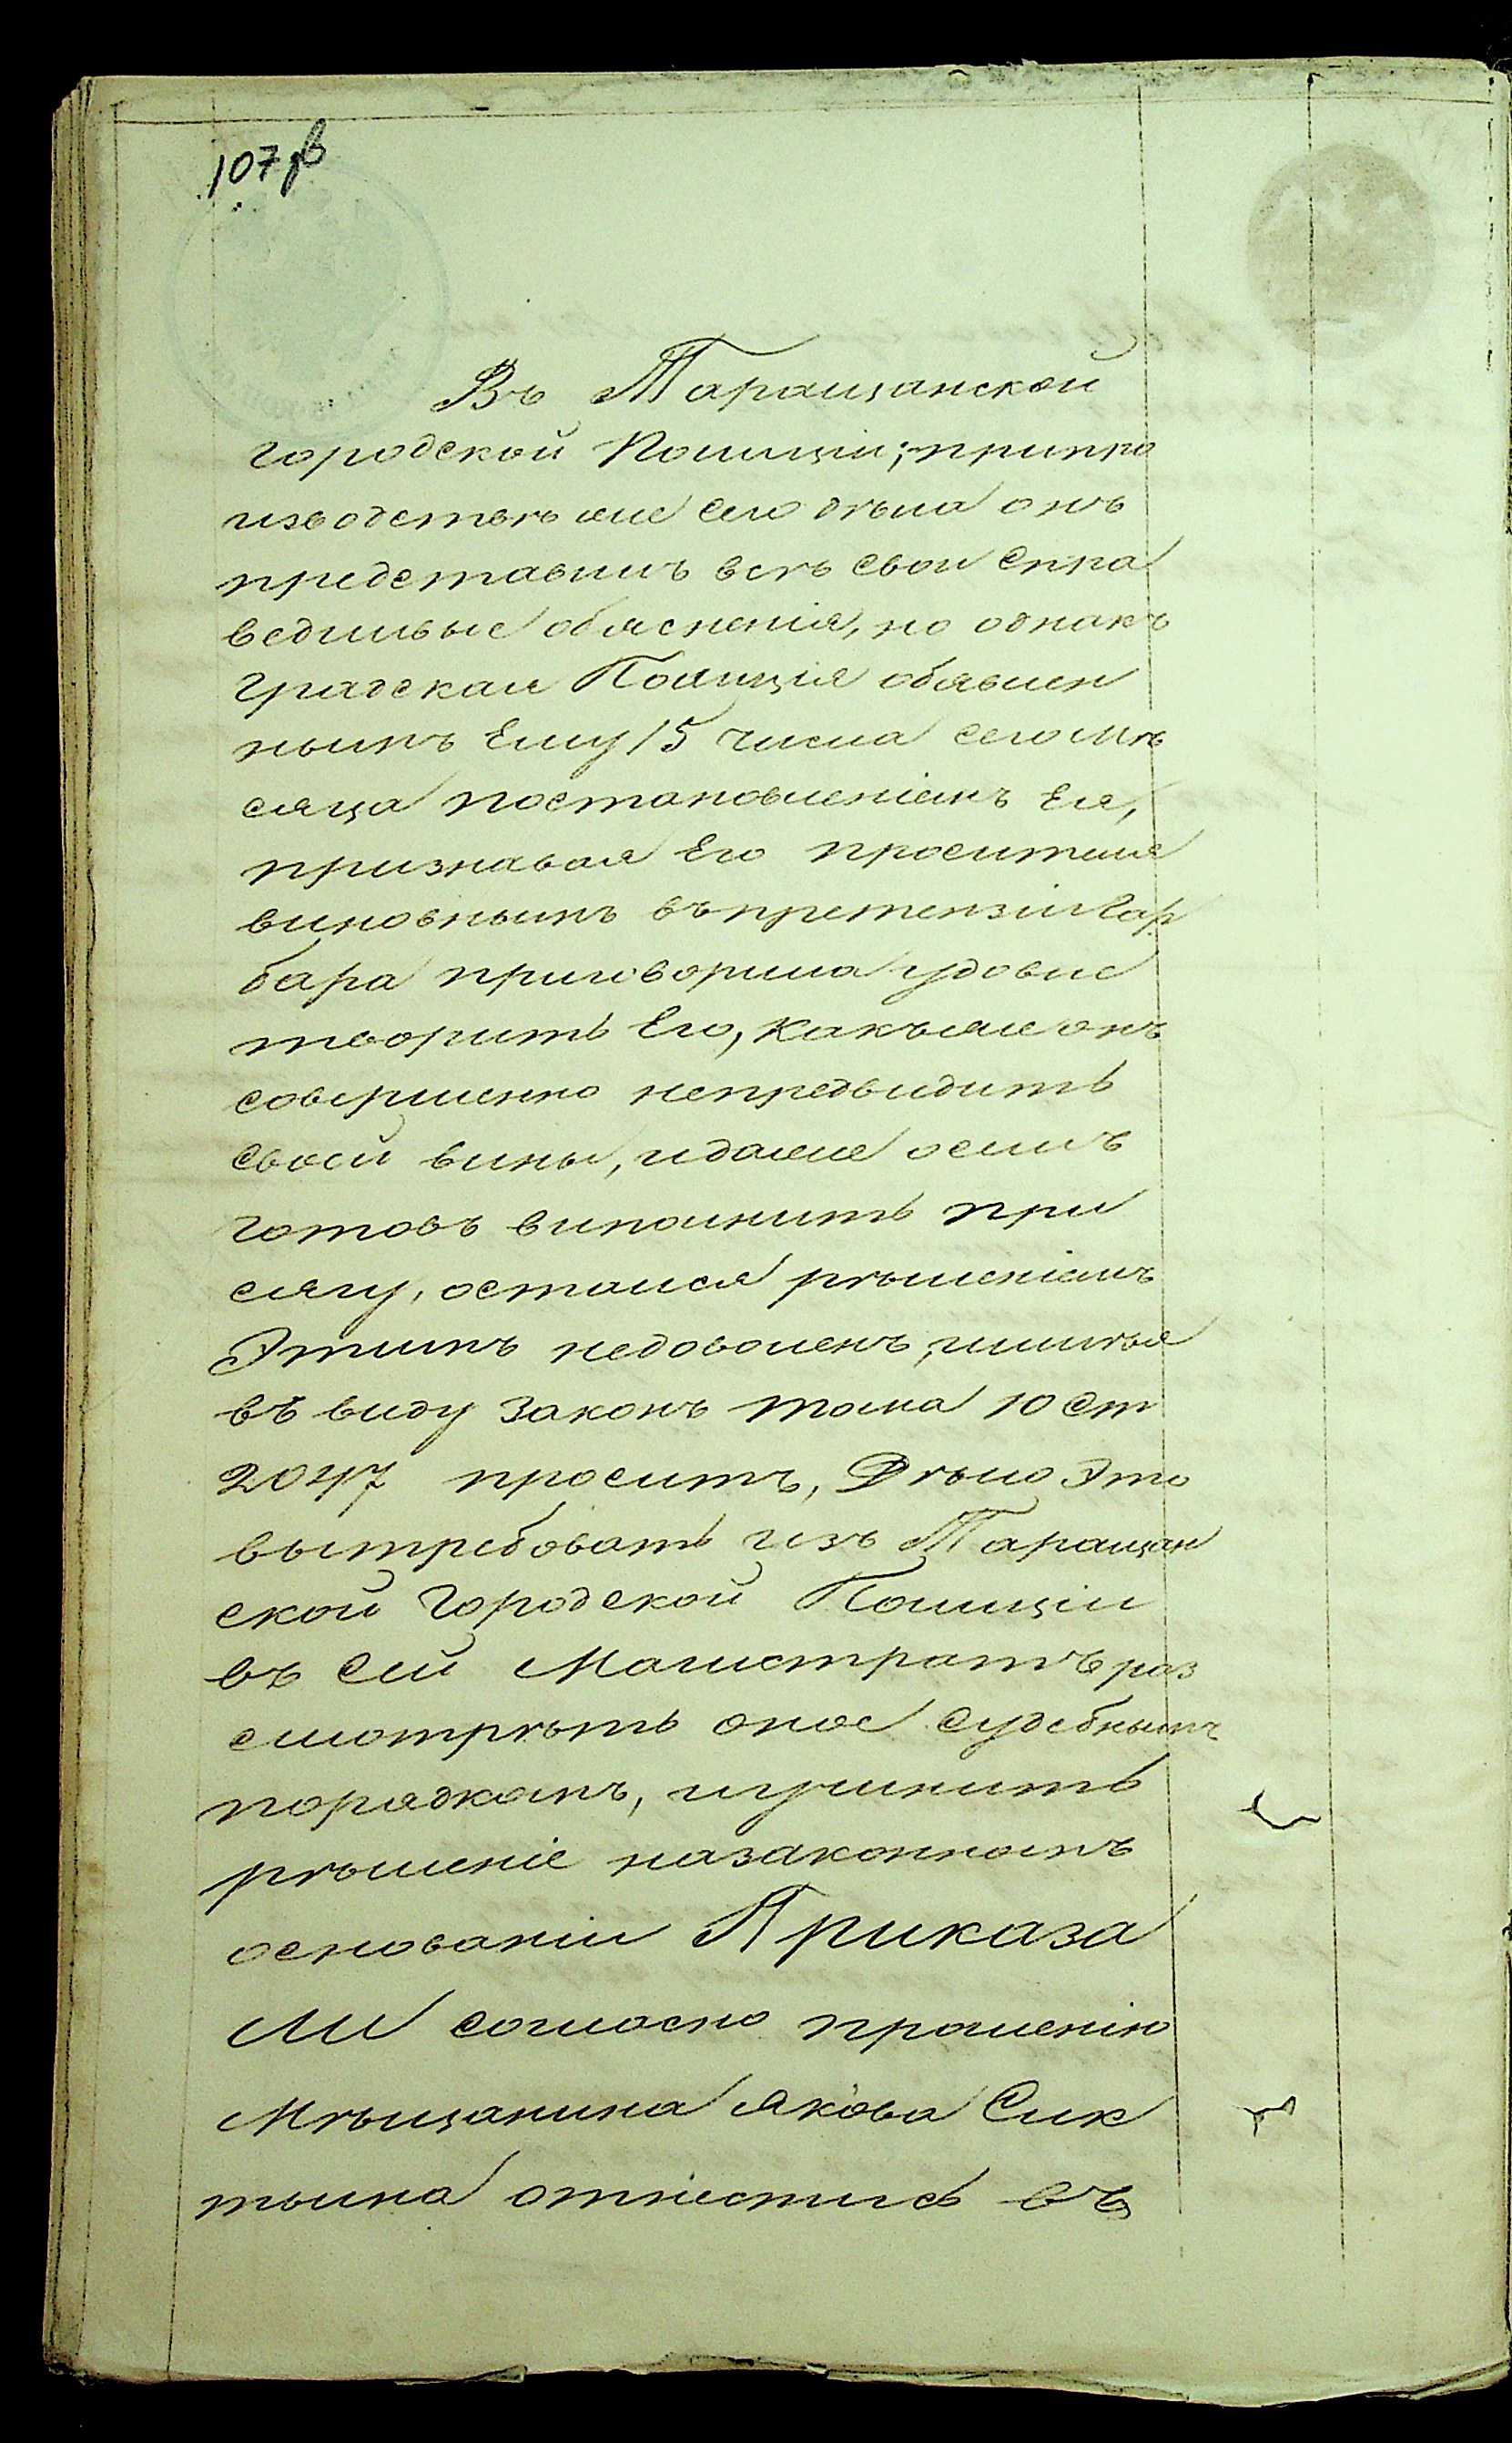 107 об
Въ Таращанской
городской Полиціи; припро
изводствѣ же сего дѣла онъ
представилъ всѣ свои спра
ведливые обясненія, но однакъ
градская Полиція обявлен
нымъ Ему 15 числа сего мѣ
сяца постановленіемъ Ея,
признавая Его просителя
виновнымъ въпретензіи Гар
бара приговорила удовле
творить Его, какъже онъ
совершенно непредвидитъ
своей вины, идаже осемъ
готовъ виполнить при
сягу, остался рѣшеніемъ
Этимъ недоволенъ, имѣя
въ виду законъ тома 10 ст
2047 проситъ, Дѣло Это
вытребовать изъ Таращан
ской Городской Полиціи
въ сей Магистратъ раз
смотрѣть оное судебнымъ
порядкомъ, иучинить
рѣшеніе назаконномъ
основаніи Приказа
ли согласно прошенію
Мѣщанина Якова Сик
отнестись въ